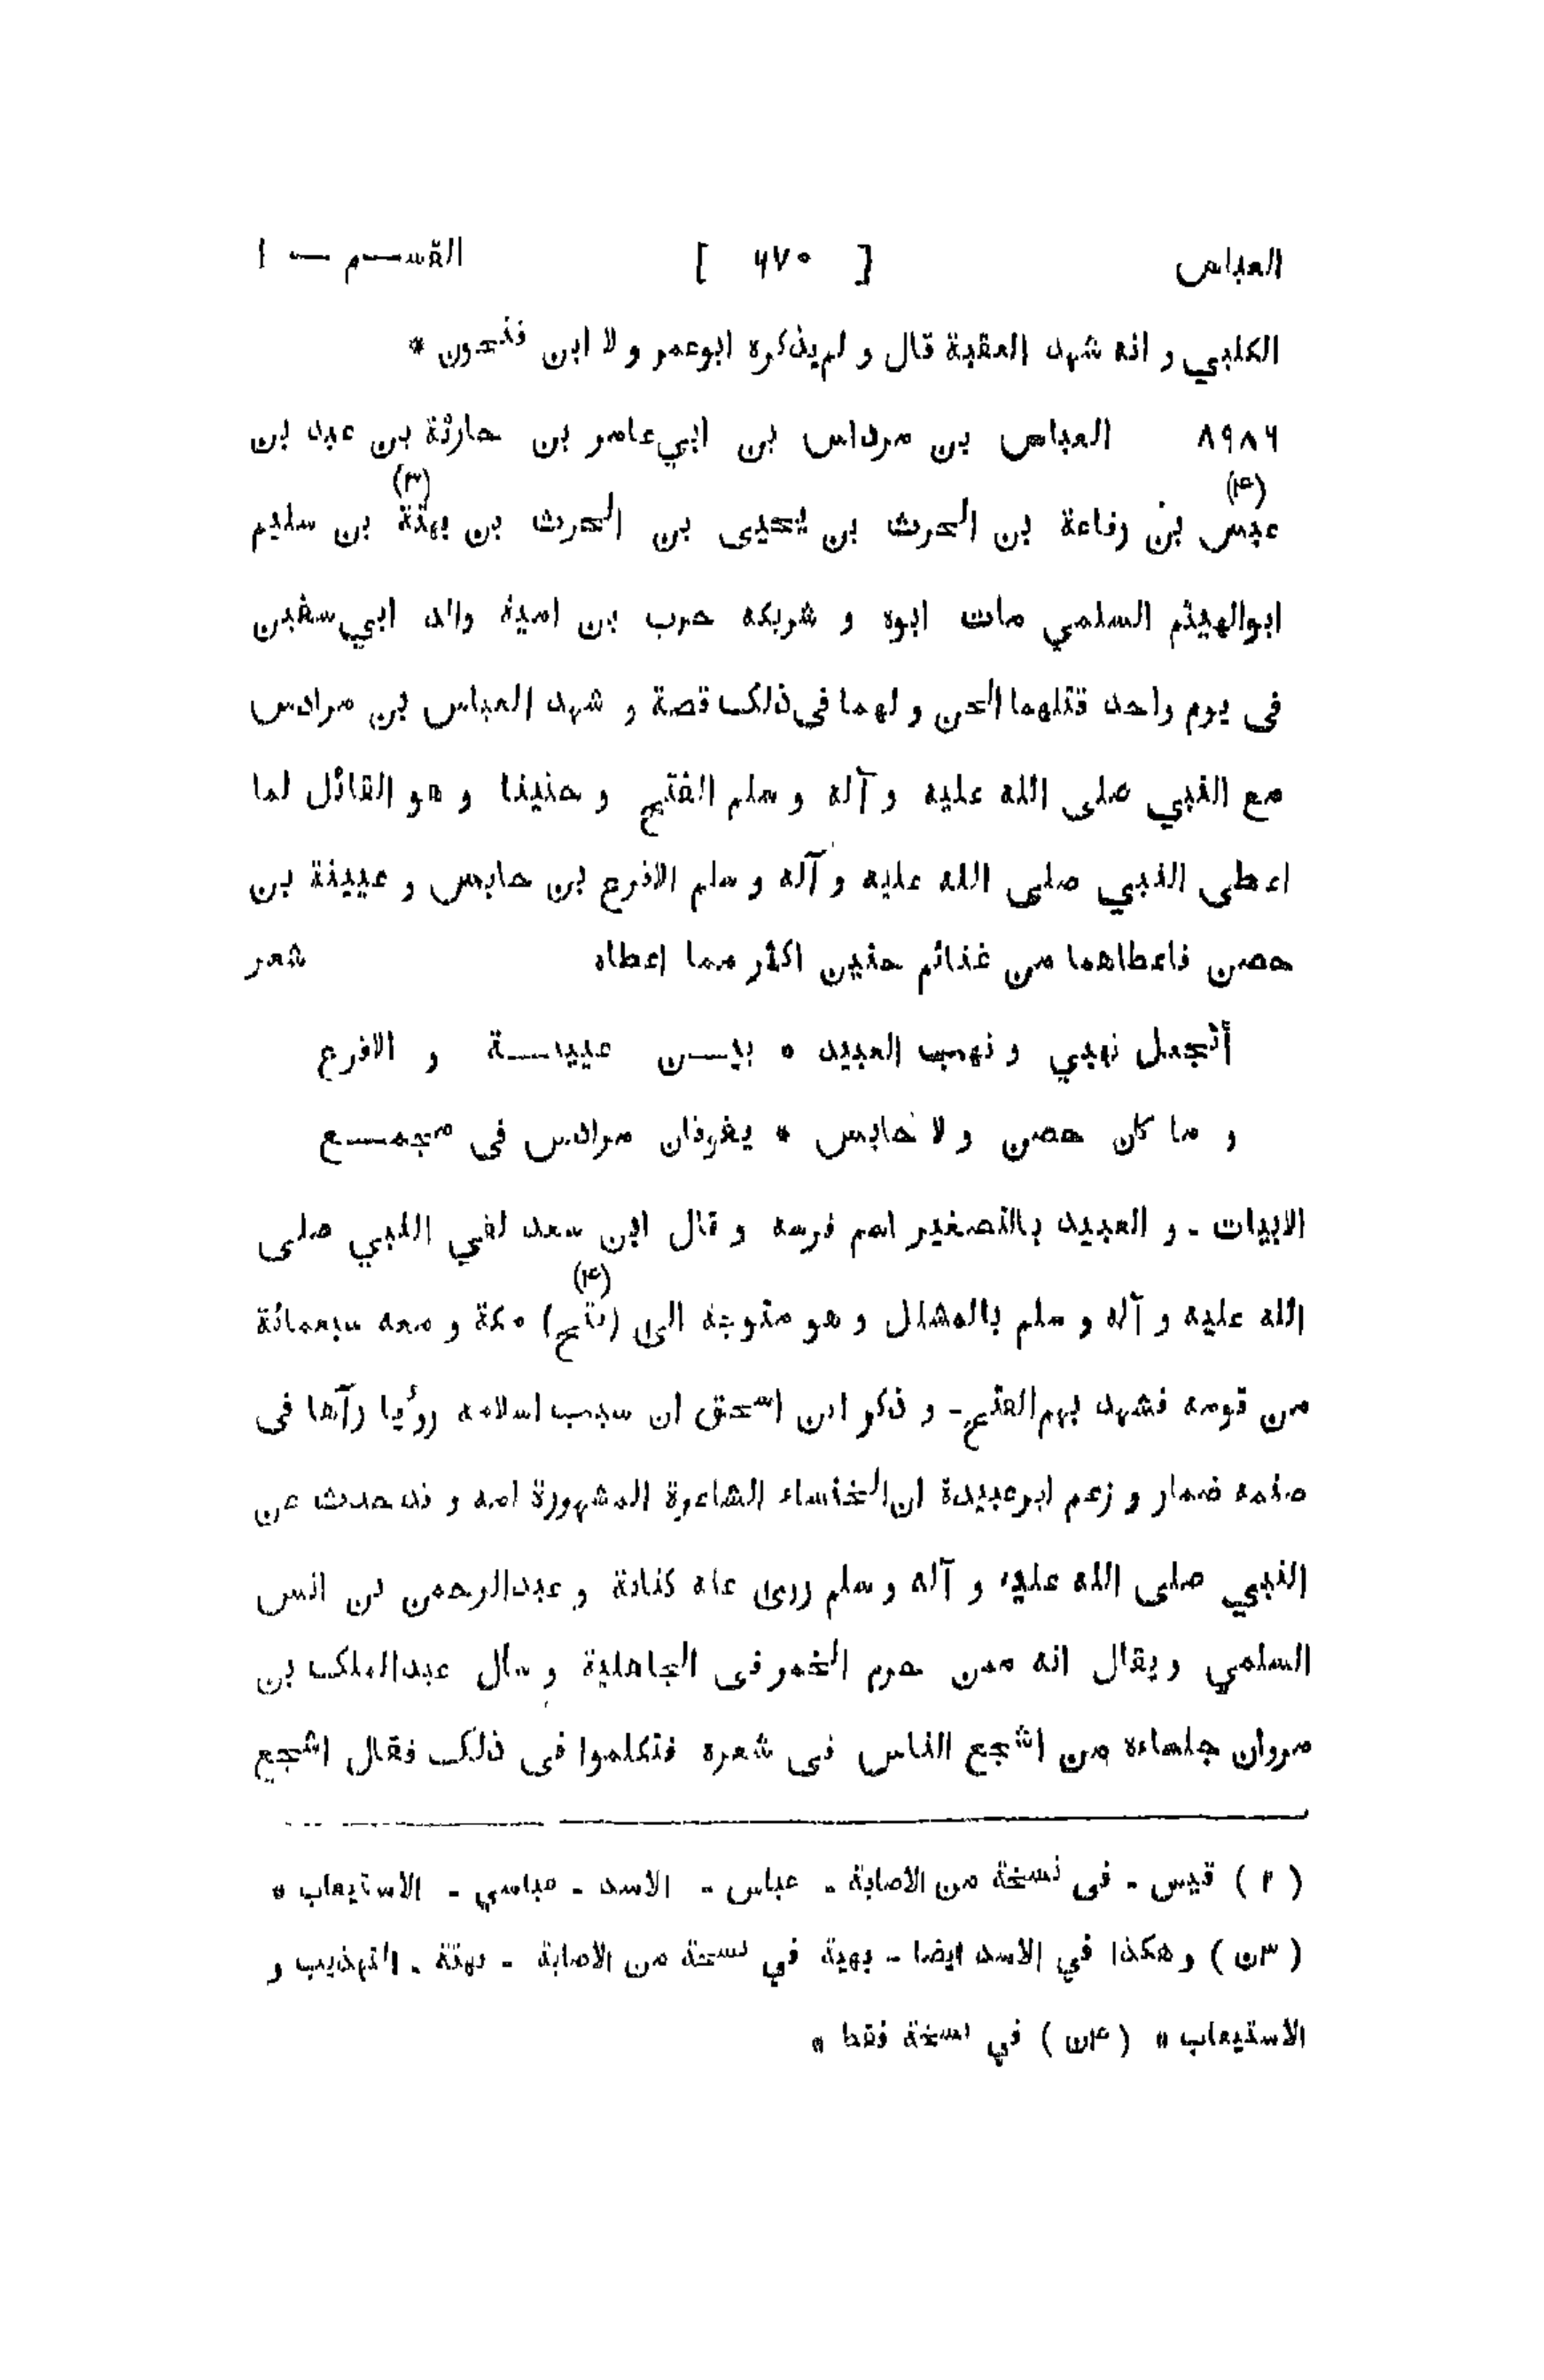 العباس [ ٦٧٠ ] القسم — ١
الكلبي و انه شهد العقبة قال و لم يذكره ابو عمر و لا ابن فتحون *
٨٩٨٦ العباس بن مرداس بن ابي عامر بن حارثة بن عبد بن
عبس (٢) بن رفاعة بن الحرث بن يحيى بن الحرث بن بهثة (٣) بن سليم
ابو الهيثم السلمي مات ابوه و شريكه حرب بن امية والد ابي سفين
فى يوم واحد قتلهما الجن و لهما فى ذلك قصة و شهد العباس بن مرادس
مع النبي صلى الله عليه و آله و سلم الفتح و حنينا و هو القائل لما
اعطى النبي صلى الله عليه و آله و سلم الاقرع بن حابس و عيينة بن
حصن فاعطاهما من غنائم حنين اكثر مما اعطاه شعر
أتجعل نهبي و نهب العبيد * بيـــن عيينـــة و الاقرع
و ما كان حصن و لا حابس * يفوقان مرادس فى مجمـــع
الابيات - و العبيد بالتصغير اسم فرسه و قال ابن سعد لقي النبي صلى
الله عليه و آله و سلم بالمشلل و هو متوجه الى (فتح) (٤) مكة و معه سبعمائة
من قومه فشهد بهم الفتح - و ذكر ابن اسحق ان سبب اسلامه رؤيا رآها فى
صنمه ضمار و زعم ابو عبيدة ان الخنساء الشاعرة المشهورة امه و قد حدث عن
النبي صلى الله عليه و آله و سلم روى عنه كنانة و عبد الرحمن بن انس
السلمي و يقال انه ممن حرم الخمر فى الجاهلية و سأل عبد الملك بن
مروان جلساءه من اشجع الناس فى شعره فتكلموا فى ذلك فقال اشجع
( ٢ ) قيس - فى نسخة من الاصابة - عباس - الاسد - عباسي - الاستيعاب *
( ٣ن ) و هكذا في الاسد ايضا - بهية في نسخة من الاصابة - بهثة - التهذيب و
الاستيعاب * ( ٤ن ) في نسخة فقط *